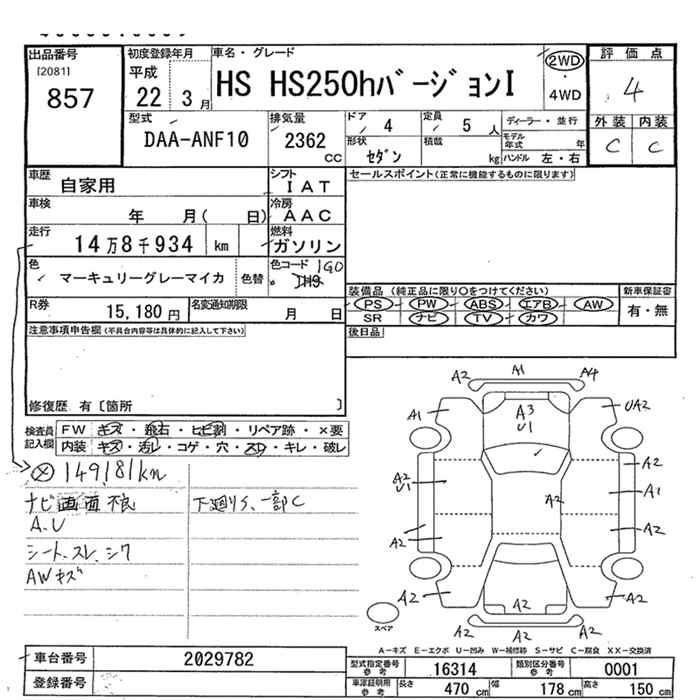 出品番号
[2081]
857
初度登録年月
平成
22 3月
車名・グレード
HS HS250hバージョンI
2WD
・
4WD
評価点
4
外装 内装
C C
型式
DAA-ANF10
排気量
2362
CC
ドア 4
形状
セダン
定員 5人
積載 kg
ディーラー・並行
モデル年式 年
ハンドル 左・右
車歴 自家用
シフト IAT
セールスポイント(正常に機能するものに限ります)
車検 年 月( 日)
冷房 AAC
走行 14万8千934 km
燃料 ガソリン
色 マーキュリーグレーマイカ 色替
色コード 1G0
R券 15,180円
名変通知期限 月 日
装備品(純正品に限り○をつけてください)
PS PW ABS エアB AW
SR ナビ TV カワ
新車保証書
有・無
後日品
注意事項申告欄(不具合内容等は具体的に記入して下さい)
修復歴 有〔箇所 〕
検査員記入欄
FW キズ・飛石・ヒビ割・リペア跡・×要
内装 キズ・汚レ・コゲ・穴・スレ・キレ・破レ
149,181km
ナビ画面不良
下廻りS、一部C
A.U
シート、スレ、シワ
AWキズ
A2 A1 A4
A1 A3 U1 UA2
A2 U1 A2 A2
A1
A2 A2
A2 A2 A2
A2
スペア
A-キズ E-エクボ U-凹み W-補修跡 S-サビ C-腐食 XX-交換済
車台番号 2029782
登録番号
型式指定番号参考 16314
類別区分番号参考 0001
車庫証明用参考 長さ 470cm 幅 178cm 高さ 150cm